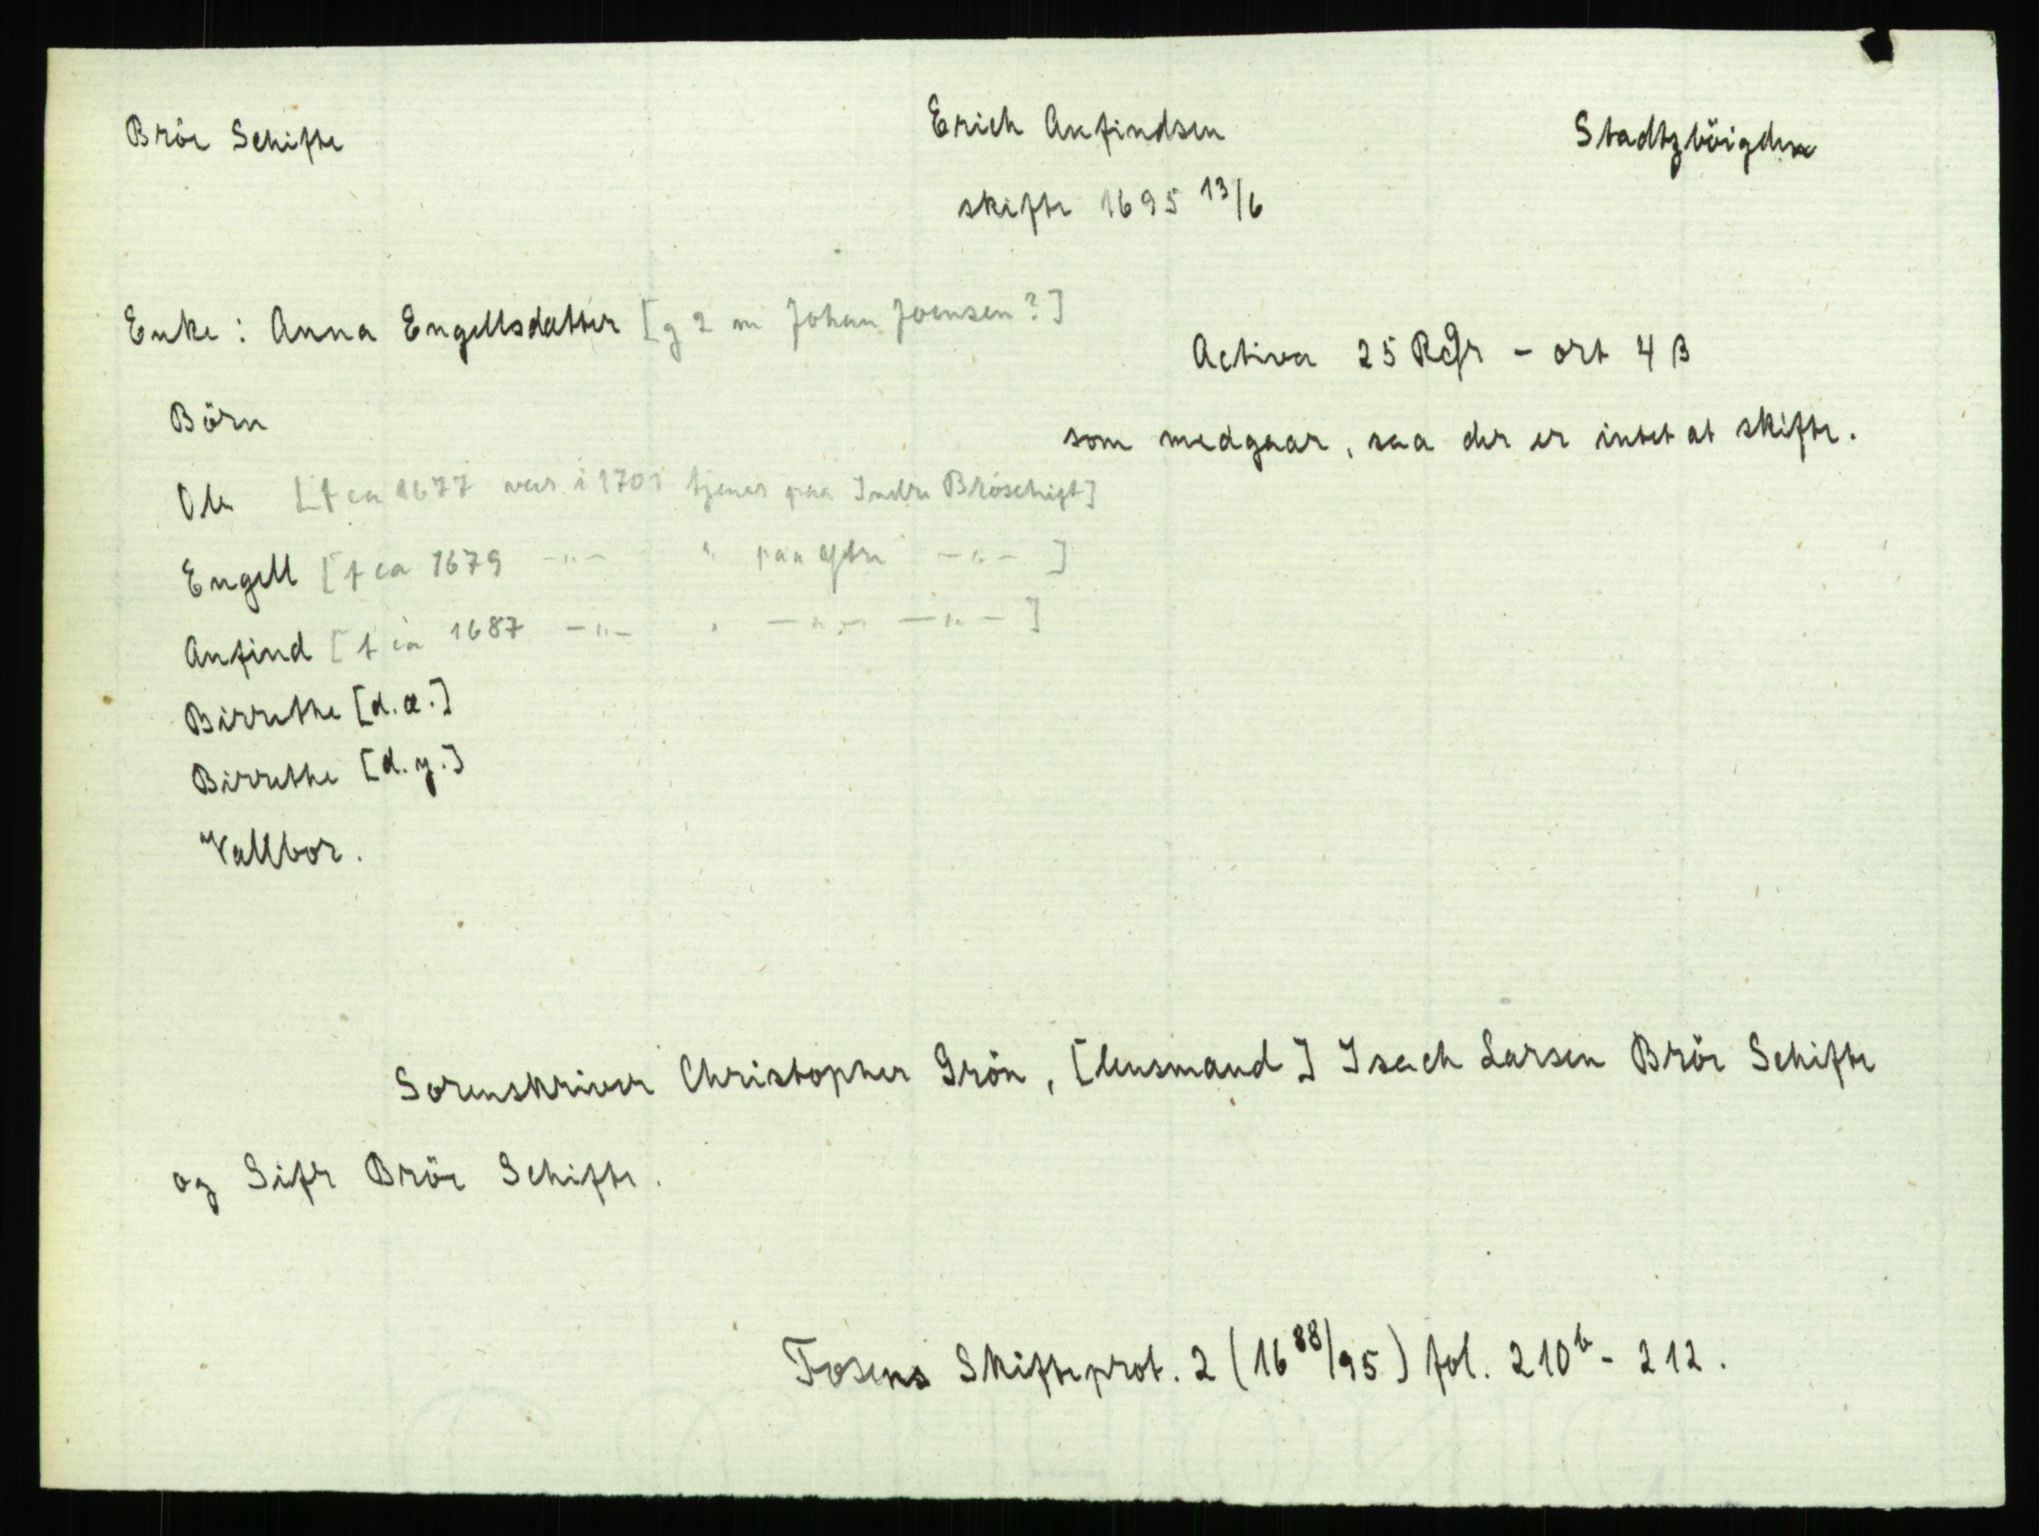 Bröe Schifte
Erich Anfindsen
Stadtzböigden
skifte 1695 13/6
Enke: Anna Engellsdatter [g 2 m Johan Joensen?]
Activa 25 Rdlr - ort 4 β
Börn
som medgaar, saa der er intet at skifte.
Ole [f ca 1677 var i 1701 tjener paa Indre Bröschift]
Engell [f ca 1679 -"- " paa Ytre -"- ]
Anfind [f ca 1687 -"- " -"- -"- ]
Birrethe [d.æ.]
Birrethe [d.y.]
Vallbor.
Sorenskriver Christopher Grön, [lensmand] Isach Larsen Bröe Schifte
og Sifr Bröe Schifte.
Fosens Skifteprot. 2 (1688/95) fol. 210b - 212.